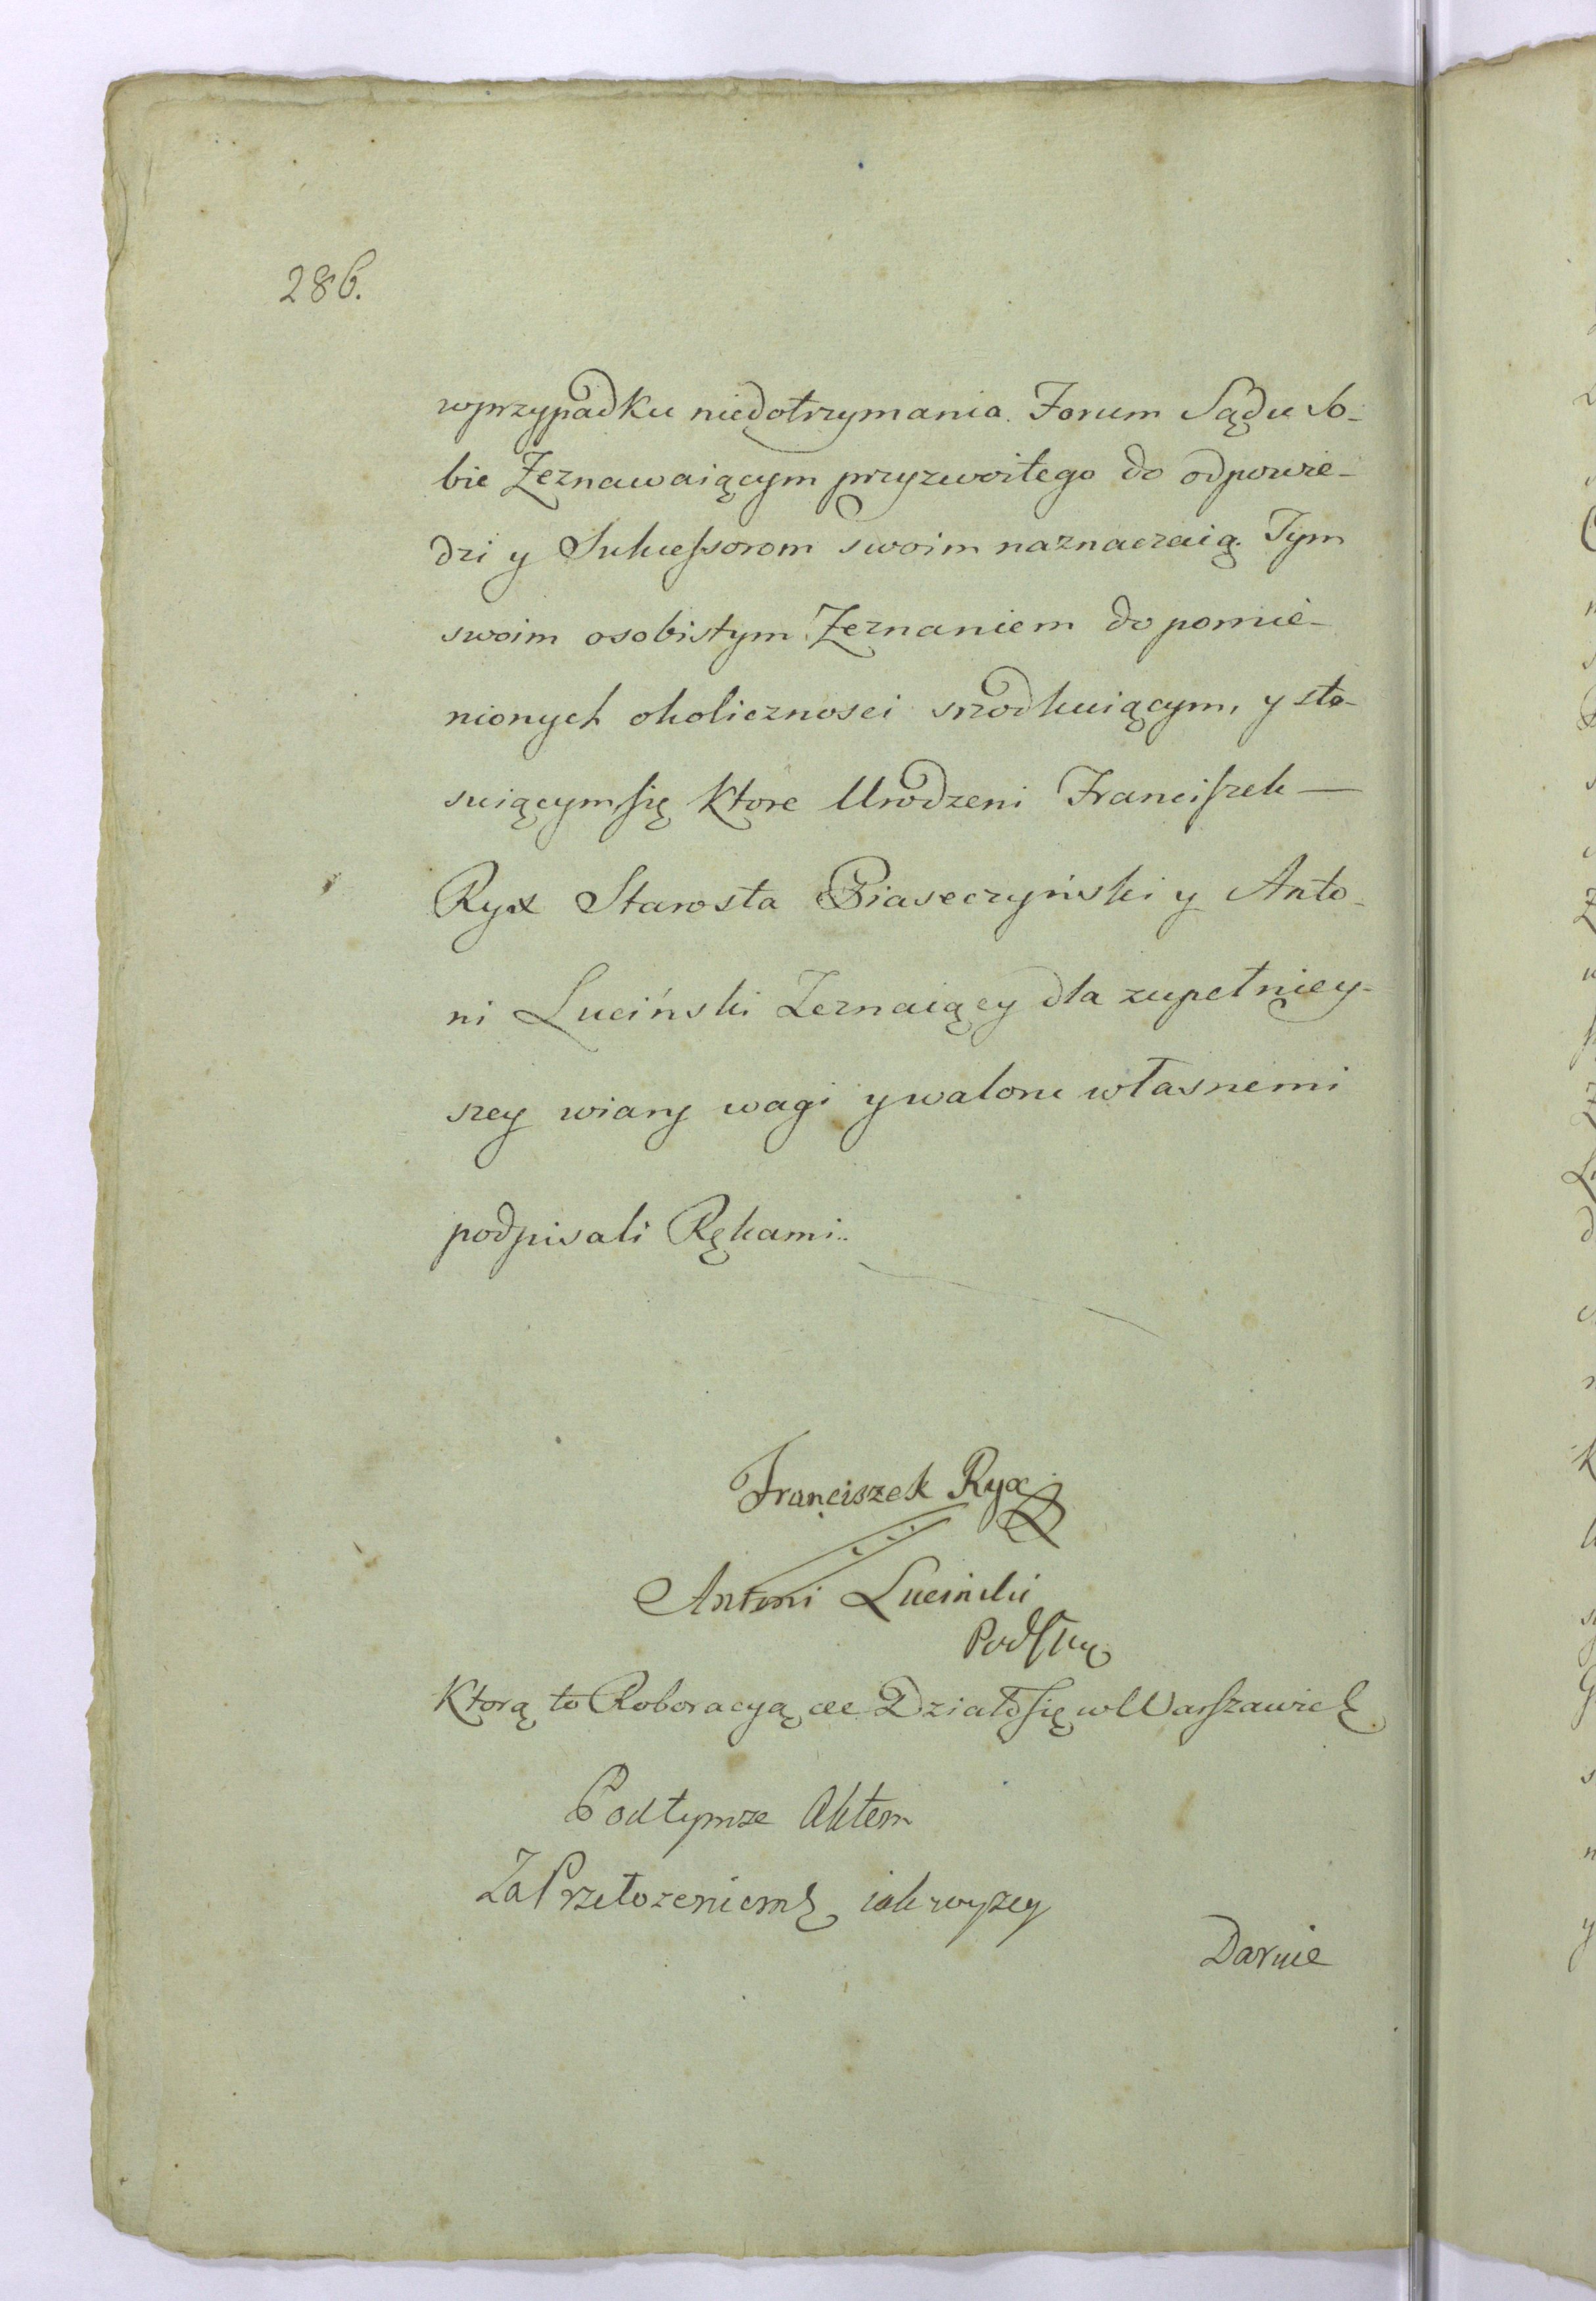 286.
wprzypadku niedotrzymania. Forum Sądu So-
bie Zeznawaiącym przyzwoitego do odpowie-
dzi y Sukcessorom swoim naznaczaią. Tym
swoim osobistym Zeznaniem do pomie-
nionych okolicznosci srzodkuiącym, y sto-
suiącym się Ktore Urodzeni Franciszek —
Ryx Starosta Piaseczyński y Anto-
ni Luciński Zeznaiący dla zupełniey-
szey wiary wagi y waloru własnemi
podpisali Rękami..
Franciszek Ryx
Antoni Luciński
Ktorą to Roboracyą etc Działo się w Warszawie
Podtymze Aktem
Za Przełozeniem iak wyzey
Darnie